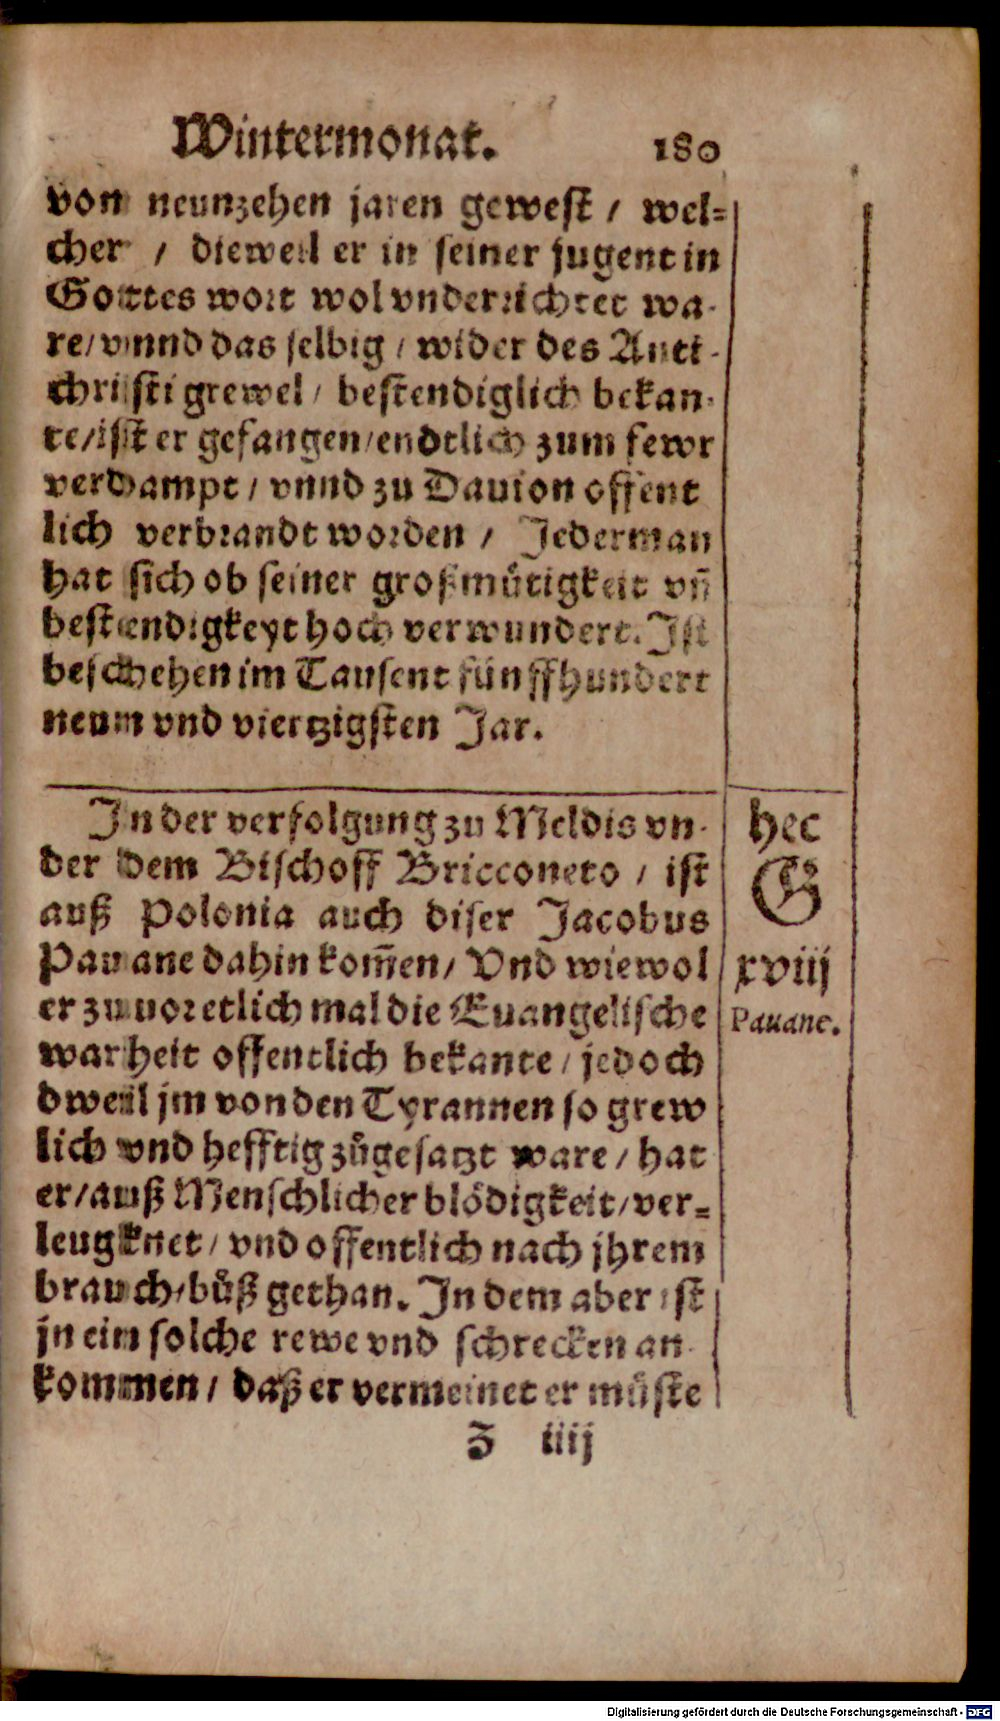 Wintermonat. 180
von neunzehen jaren gewest / wel⸗
cher / dieweil er in seiner jugent in
Gottes wort wol vnderrichtet wa-
re / vnnd das selbig / wider des Anti-
christi grewel / bestendiglich bekan-
te / ist er gefangen / endtlich zum fewr
verdampt / vnnd zu Dauion offent
lich verbrandt worden / Jederman
hat sich ob seiner großmuͤtigkeit vñ
bestendigkeyt hoch verwundert. Ist
beschehen im Tausent fünffhundert
neun vnd viertzigsten Jar.
In der verfolgung zu Meldis vn-
der dem Bischoff Bricconeto / ist
auß Polonia auch diser Jacobus
Pauane dahin kom̃en / Vnd wiewol
er zuuor etlich mal die Euangelische
warheit offentlich bekante / jedoch
dweil jm von den Tyrannen so grew
lich vnd hefftig zůgesatzt ware / hat
er / auß Menschlicher blödigkeit / ver⸗
leugknet / vnd offentlich nach jhrem
brauch / bůß gethan. In dem aber ist
jn ein solche rewe vnd schrecken an-
kommen / daß er vermeinet er muͤste
Z iiij
hec
G
xviij
Pauane.
Digitalisierung gefördert durch die Deutsche Forschungsgemeinschaft - DFG